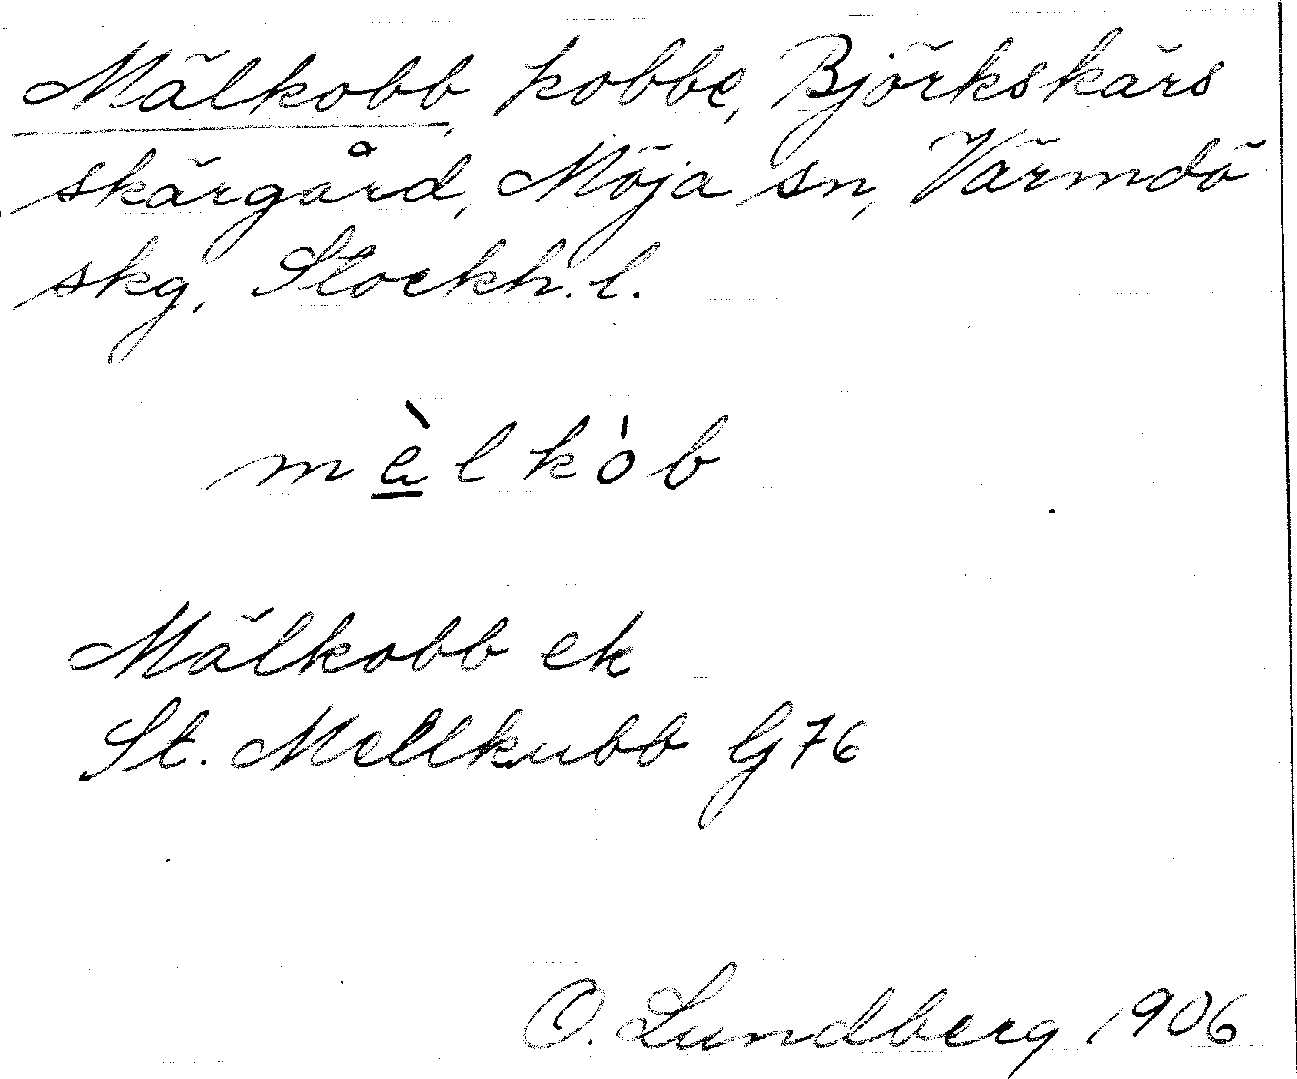 Mälkobb, kobbe, Björkskärs
skärgård, Möja sn, Värmdö
skg, Stockh. l.
mèlkób
Mälkobb ek
St. Mellkubb G76
O. Lundberg 1906